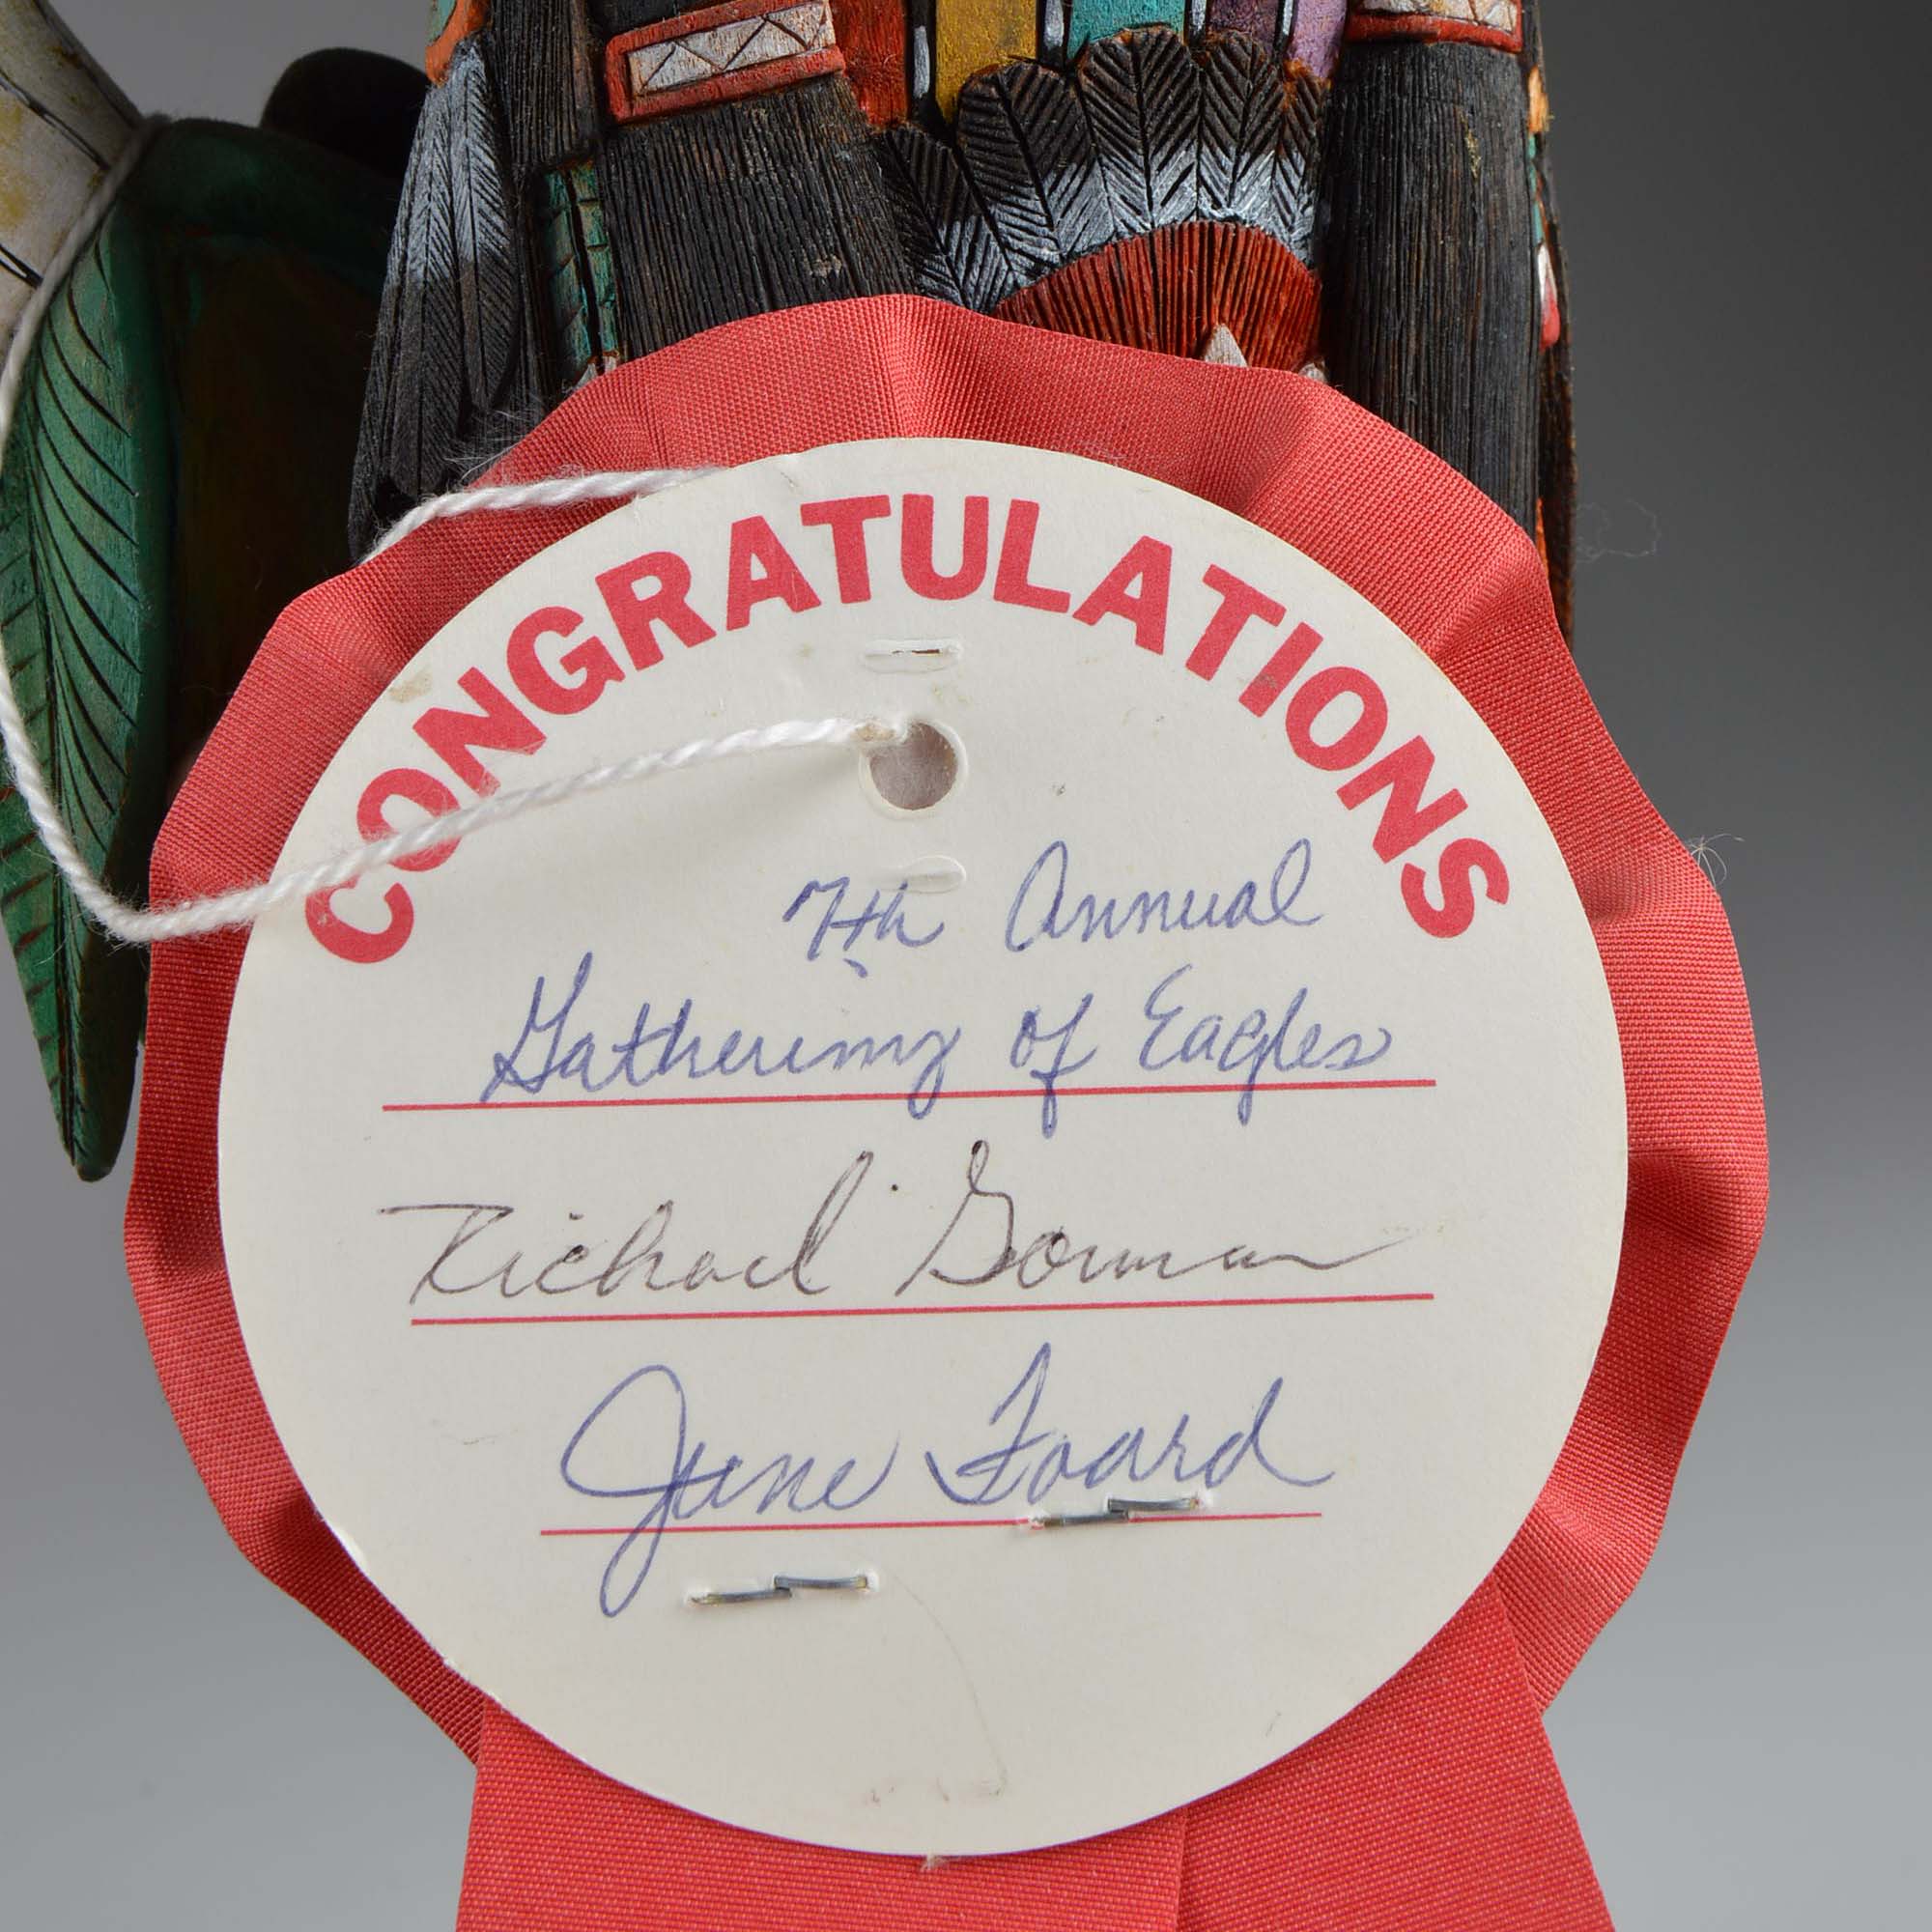 CONGRATULATIONS
7th Annual
Gathering of Eagles
Richard Gorman
June Foard